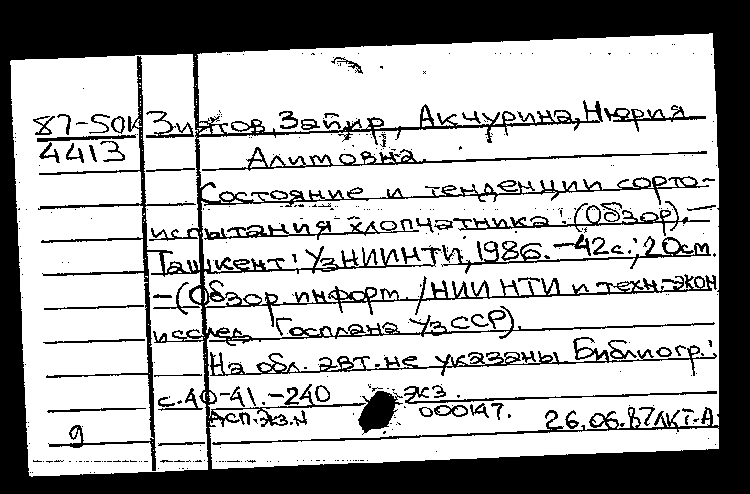 87-50К Зиятов, Запир, Акчурина, Нюрия
4413 Алимовна.
Состояние и тенденции сорто-
испытания хлопчатника: (Обзор).—
Ташкент: УзНИИНТИ, 1986. —42с.; 20см.
—(Обзор. информ. /НИИ НТИ и техн.-экон
исслед. Госплана УзССР).
На обл. авт. не указаны Библиогр.:
с.40-41.-240 экз.
000147.
26.06.87
9